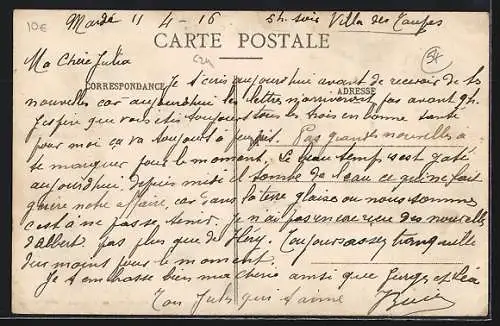 10€
Mardi 11-4-16 5h. soir Villa des Taupes
CARTE POSTALE
Ma Chère Julia
CORRESPONDANCE
ADRESSE
Je t'écris aujourd'hui avant de recevoir de tes
nouvelles car aujourd'hui les lettres n'arriveront pas avant 9h.
J'espère que vous êtes toujours tous les trois en bonne santé
pour moi ça va toujours à peu près. Pas grandes nouvelles à
te marquer pour le moment. Le beau temps s'est gâté
aujourd'hui, depuis midi il tombe de l'eau ce qui ne fait
guère notre affaire, car dans la terre glaise où nous sommes
c'est à ne passe tenir. Je n'ai pas encore eu des nouvelles
d'Albert pas plus que de Fléry. Toujours assez tranquille
du moins pour le moment.
Je t'embrasse bien ma chérie ainsi que et Léa
Ton Jules qui t'aime